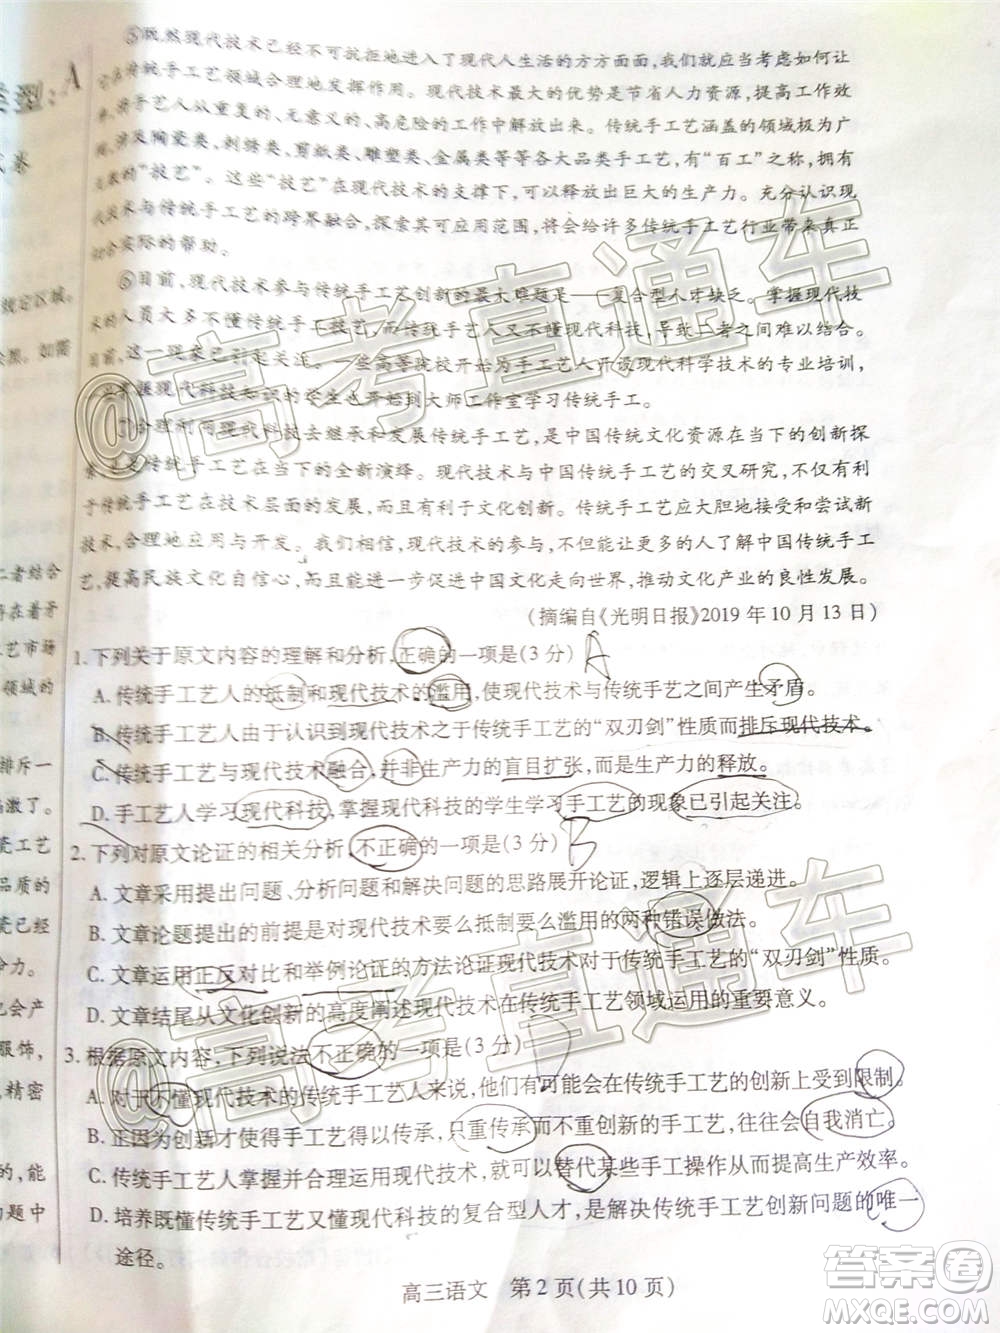 ⑤既然现代技术已经不可抗拒地进入了现代人生活的方方面面,我们就应当考虑如何让
它在传统手工艺领域合理地发挥作用。现代技术最大的优势是节省人力资源,提高工作效
率,将手工艺人从重复的、无意义的、高危险的工作中解放出来。传统手工艺涵盖的领域极为广
泛,涉及陶瓷类、刺绣类、剪纸类、雕塑类、金属类等等各大品类手工艺,有“百工”之称,拥有不
的“技艺”。这些“技艺”在现代技术的支撑下,可以释放出巨大的生产力。充分认识现
代技术与传统手工艺的跨界融合,探索其可应用范围,将会给许多传统手工艺行业带来真正
实际的帮助。
⑥目前,现代技术参与传统手工艺创新的最大难题是——复合型人才缺乏。掌握现代技
术的人员大多不懂传统手工技艺,而传统手工艺人又不懂现代科技,导致二者之间难以结合。
目前,这一现象已引起关注。一些高等院校开始为手工艺人开设现代科学技术的专业培训,
一些掌握现代科技知识的学生也开始到大师工作室学习传统手工。
⑦合理利用现代科技去继承发展传统手工艺,是中国传统文化资源在当下的创新探
索,又是文化在当下的全新演绎。现代技术与中国传统手工艺的交叉研究,不仅有利
于传统手工艺在技术层面的发展,而且有利于文化创新。传统手工艺应大胆地接受和尝试新
技术,合理地应用与开发。我们相信,现代技术的参与,不但能让更多的人了解中国传统手工
艺,提高民族文化自信心,还能进一步促进中国文化走向世界,推动文化产业的良性发展。
(摘编自《光明日报》2019年10月13日)
1. 下列关于原文内容的理解和分析,正确的一项是(3分) A
A. 传统手工艺人的抵制和现代技术的滥用,使现代技术与传统手艺之间产生矛盾。
B. 传统手工艺人由于认识到现代技术之于传统手工艺的“双刃剑”性质而排斥现代技术。
C. 传统手工艺与现代技术融合,并非生产力的盲目扩张,而是生产力的释放。
D. 手工艺人学习现代科技,掌握现代科技的学生学习手工艺的现象已引起关注。
2. 下列对原文论证的相关分析,不正确的一项是(3分) B
A. 文章采用提出问题、分析问题和解决问题的思路展开论证,逻辑上逐层递进。
B. 文章论题提出的前提是对现代技术要么抵制要么滥用的两种错误做法。
C. 文章运用正反对比和举例论证的方法论证现代技术对于传统手工艺的“双刃剑”性质。
D. 文章结尾从文化创新的高度阐述现代技术在传统手工艺领域运用的重要意义。
3. 根据原文内容,下列说法不正确的一项是(3分)
A. 对于不懂现代技术的传统手工艺人来说,他们有可能会在传统手工艺的创新上受到限制。
B. 正因为创新才使得手工艺得以传承,只重传承而不重创新的手工艺,往往会自我消亡。
C. 传统手工艺人掌握并合理运用现代技术,就可以替代某些手工操作从而提高生产效率。
D. 培养既懂传统手工艺又懂现代科技的复合型人才,是解决传统手工艺创新问题的唯一
途径。
高三语文 第2页(共10页)
类型:A
规定区域
如需
二者结合
存在着矛
艺市场
领域的
排斥一
激了。
瓷工艺
品质的
瓷已经
会产
服饰,
精密
的,能
问题中
@高考直通车
@高考直通车
答案圈
MXQE.COM